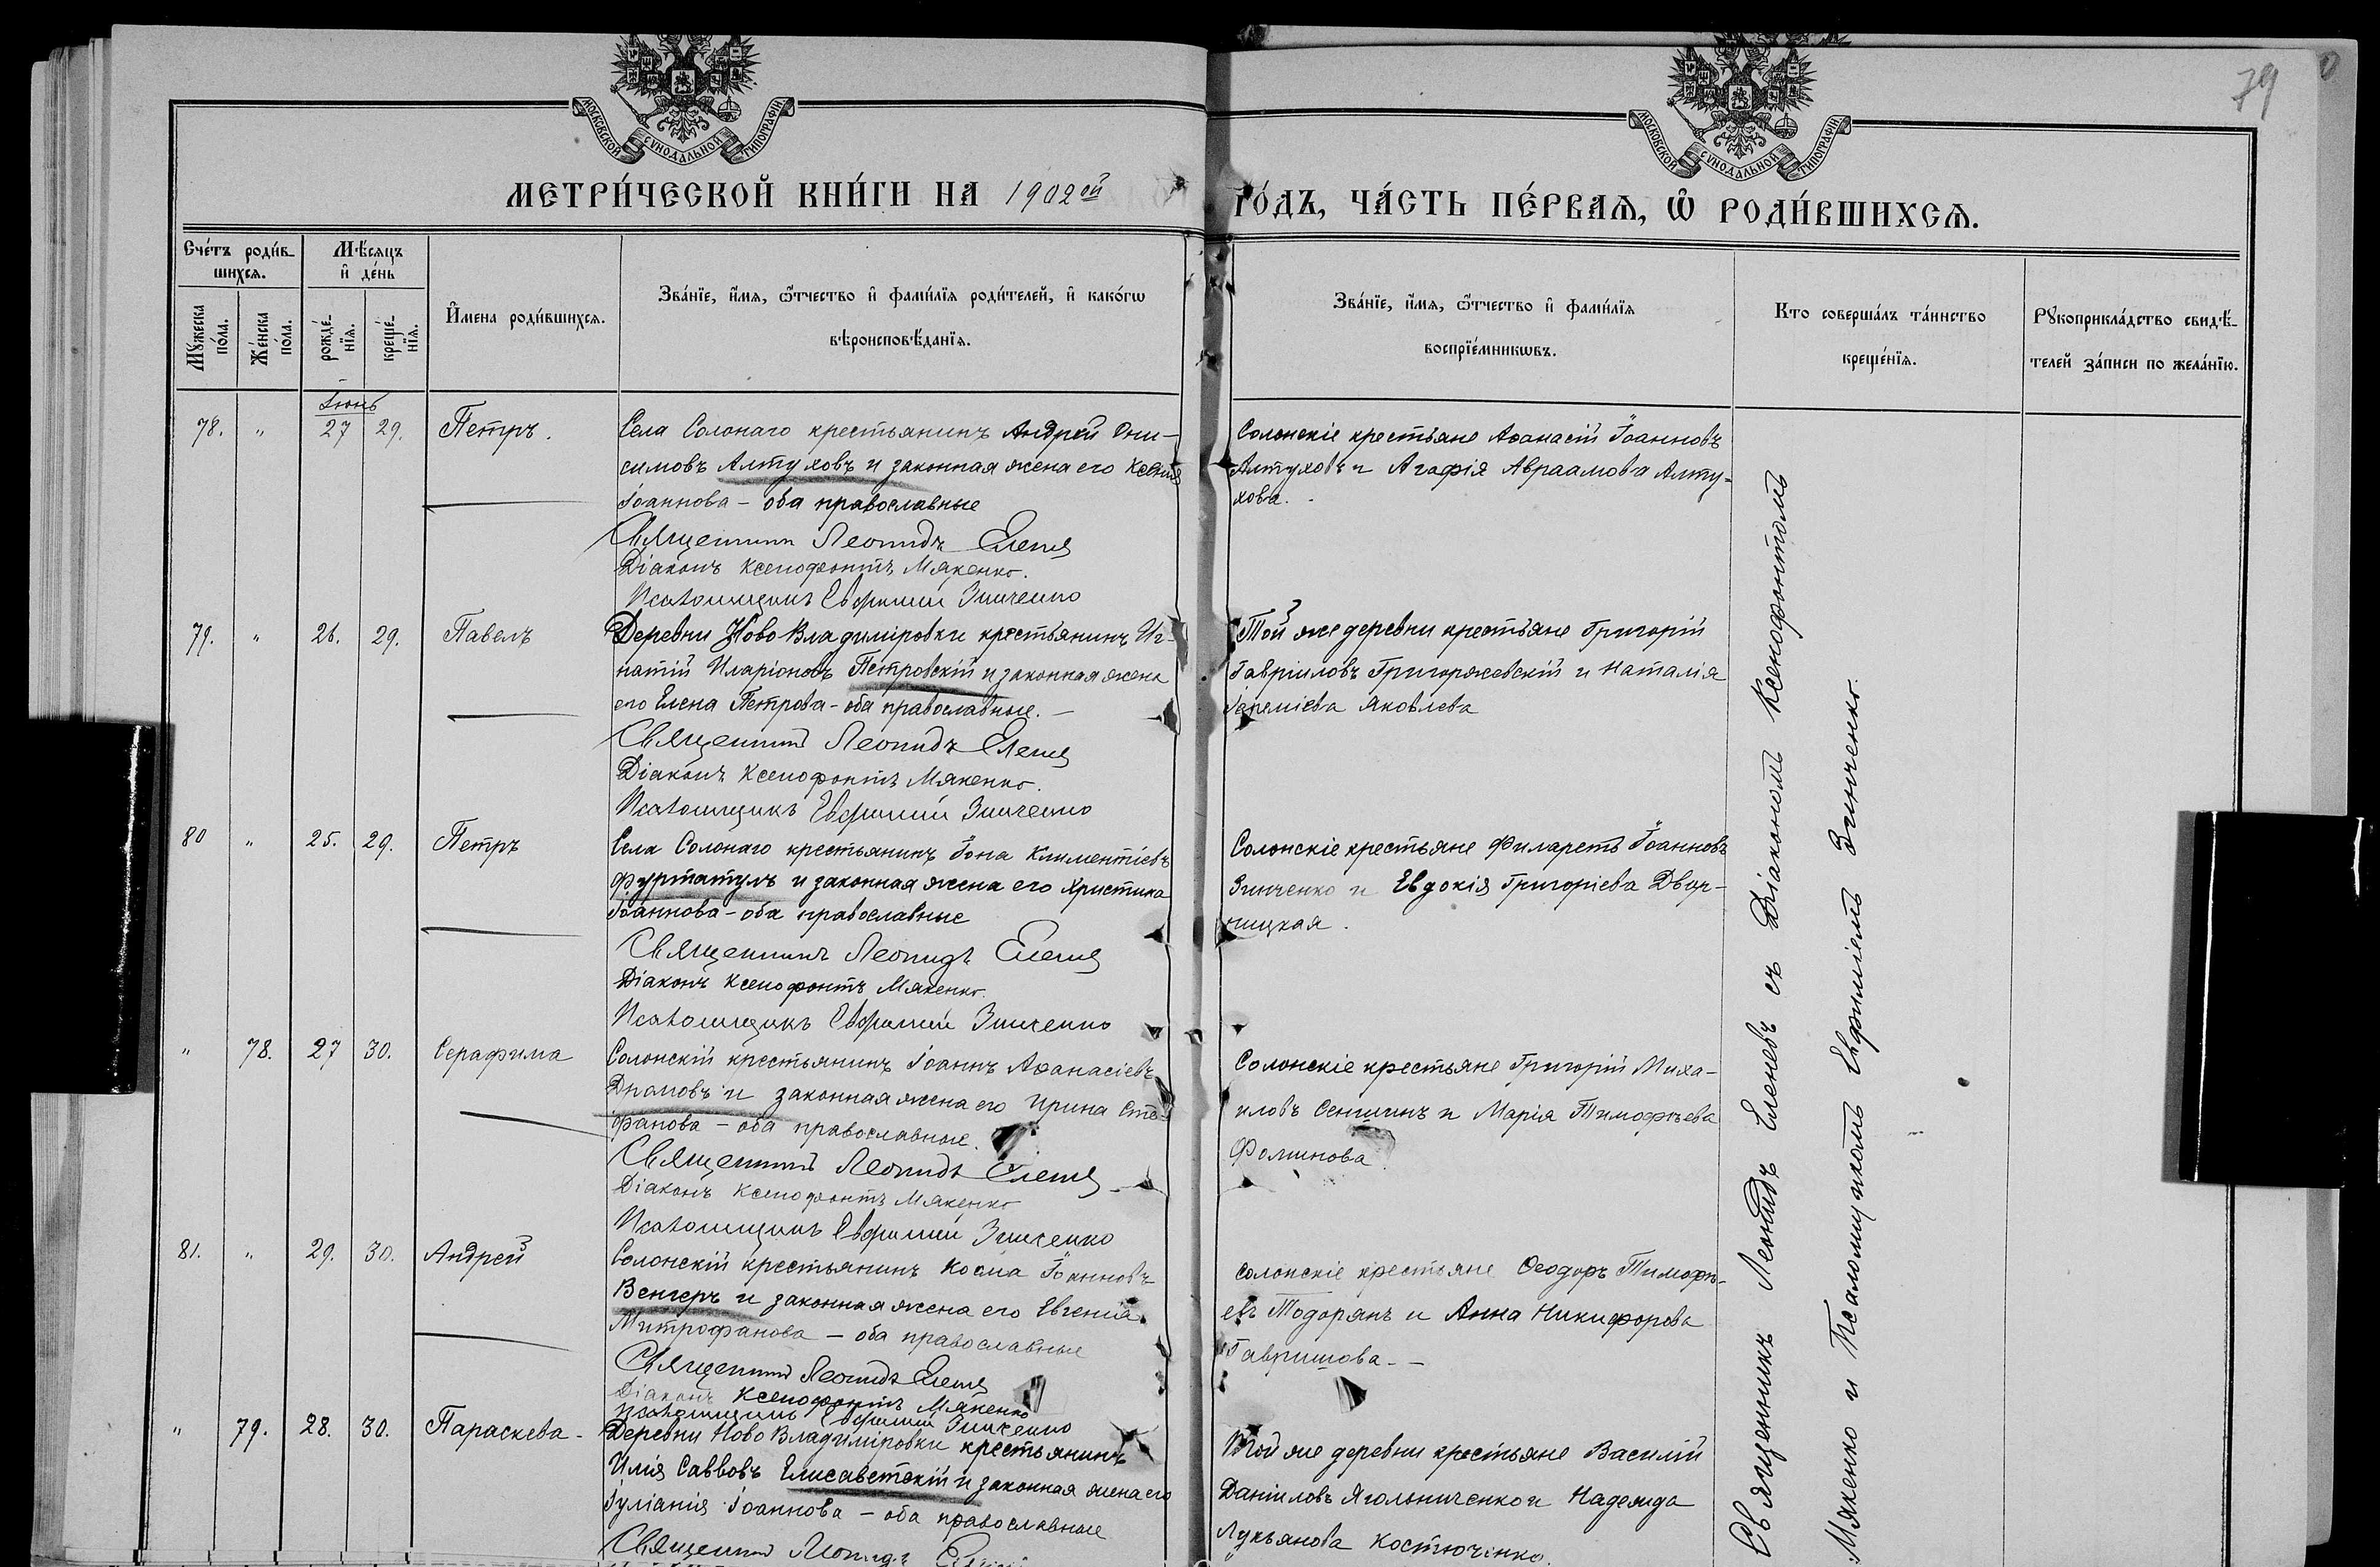 79
МОСКОВСКОЙ СѴНОДАЛЬНОЙ ТИПОГРАФІИ
МОСКОВСКОЙ СѴНОДАЛЬНОЙ ТИПОГРАФІИ
МЕТРИ́ЧЕСКОЙ КНИ́ГИ НА 1902ой
ГО́ДЪ, ЧА́СТЬ ПЕ́РВАЯ, Ѡ РОДИ́ВШИХСѦ.
Сче́тъ роди́в-
шихсѧ.
Мꙋ́жеска по́ла.
Же́нска по́ла.
Мѣ́сяцъ
и҆ де́нь
рожде́-нїѧ.
креще́-нїѧ.
И҆мена роди́вшихсѧ.
Зва́нїе, и҆́мѧ, ѻ҆́тчество и҆ фами́лїѧ роди́телей, и҆ како́гѡ
вѣроисповѣ́данїѧ.
Зва́нїе, и҆́мѧ, ѻ҆́тчество и҆ фами́лїѧ
воспрїе́мникѡвъ.
Кто соверша́лъ та́инство
креще́нїѧ.
Рꙋкоприкла́дство свидѣ́-
телей за́писи по жела́нїю.
Іюнь
78. " 27 29. Петръ.
Села Солонаго крестьянинъ Андрей Они-
симовъ Алтуховъ и законная жена его Ксенія
Іоаннова - оба православные
Священникъ Леонидъ Еленев
Діаконъ Ксенофонтъ Мякенко.
Псаломщикъ Евфимій Зинченко
Солонскіе крестьяне Аѳанасій Іоанновъ
Алтуховъ и Агафія Авраамова Алту-
хова.
79. " 26. 29. Павелъ
Деревни Ново Владиміровки крестьянинъ Иг-
натій Иларіоновъ Петровскій и законная жена
его Елена Петрова - оба православные. -
Священникъ Леонидъ Еленев
Діаконъ Ксенофонтъ Мякенко.
Псаломщикъ Евфимій Зинченко
Той же деревни крестьяне Григорій
Гавріиловъ Григоржевскій и Наталія
Іереміева Яковлева
80 " 25. 29. Петръ
Села Солонаго крестьянинъ Іона Климентіевъ
Фуртатулъ и законная жена его Христина
Іоаннова - оба православные
Священникъ Леонидъ Еленев
Діаконъ Ксенофонтъ Мякенко.
Псаломщикъ Евфимій Зинченко
Солонскіе крестьяне Филаретъ Іоанновъ
Зинченко и Евдокія Григоріева Двор-
ницкая.
" 78. 27 30. Серафима
Солонскій крестьянинъ Іоаннъ Аѳанасіевъ
и законная жена его Ирина Сте-
фанова - оба православные.
Священникъ Леонидъ Еленев
Діаконъ Ксенофонтъ Мякенко
Псаломщикъ Евфимій Зинченко
Солонскіе крестьяне Григорій Миха-
иловъ Сенишинъ и Марія Тимофѣева
Фоминова
81. " 29. 30. Андрей
Солонскій крестьянинъ Косма Іоанновъ
Венгеръ и законная жена его Евгенія
Митрофанова - оба православные
Священникъ Леонидъ Еленев
Діаконъ Ксенофонтъ Мякенко
Псаломщикъ Евфимій Зинченко
Солонскіе крестьяне Ѳеодоръ Тимофѣ-
евъ Тодорянъ и Анна Никифорова
Гавришова. -
" 79. 28. 30. Параскева -
Деревни Ново Владиміровки крестьянинъ
Илія Саввовъ Елисаветскій и законная жена его
Іуліанія Іоаннова - оба православные
Священникъ Леонидъ
Той же деревни крестьяне Василій
Даніиловъ Ягольниченко и Надежда
Лукьянова Костюченко.
Священникъ Леонидъ Еленевъ съ Діакономъ Ксенофонтомъ
Мякенко и Псаломщикомъ Евфиміемъ Зинченко.